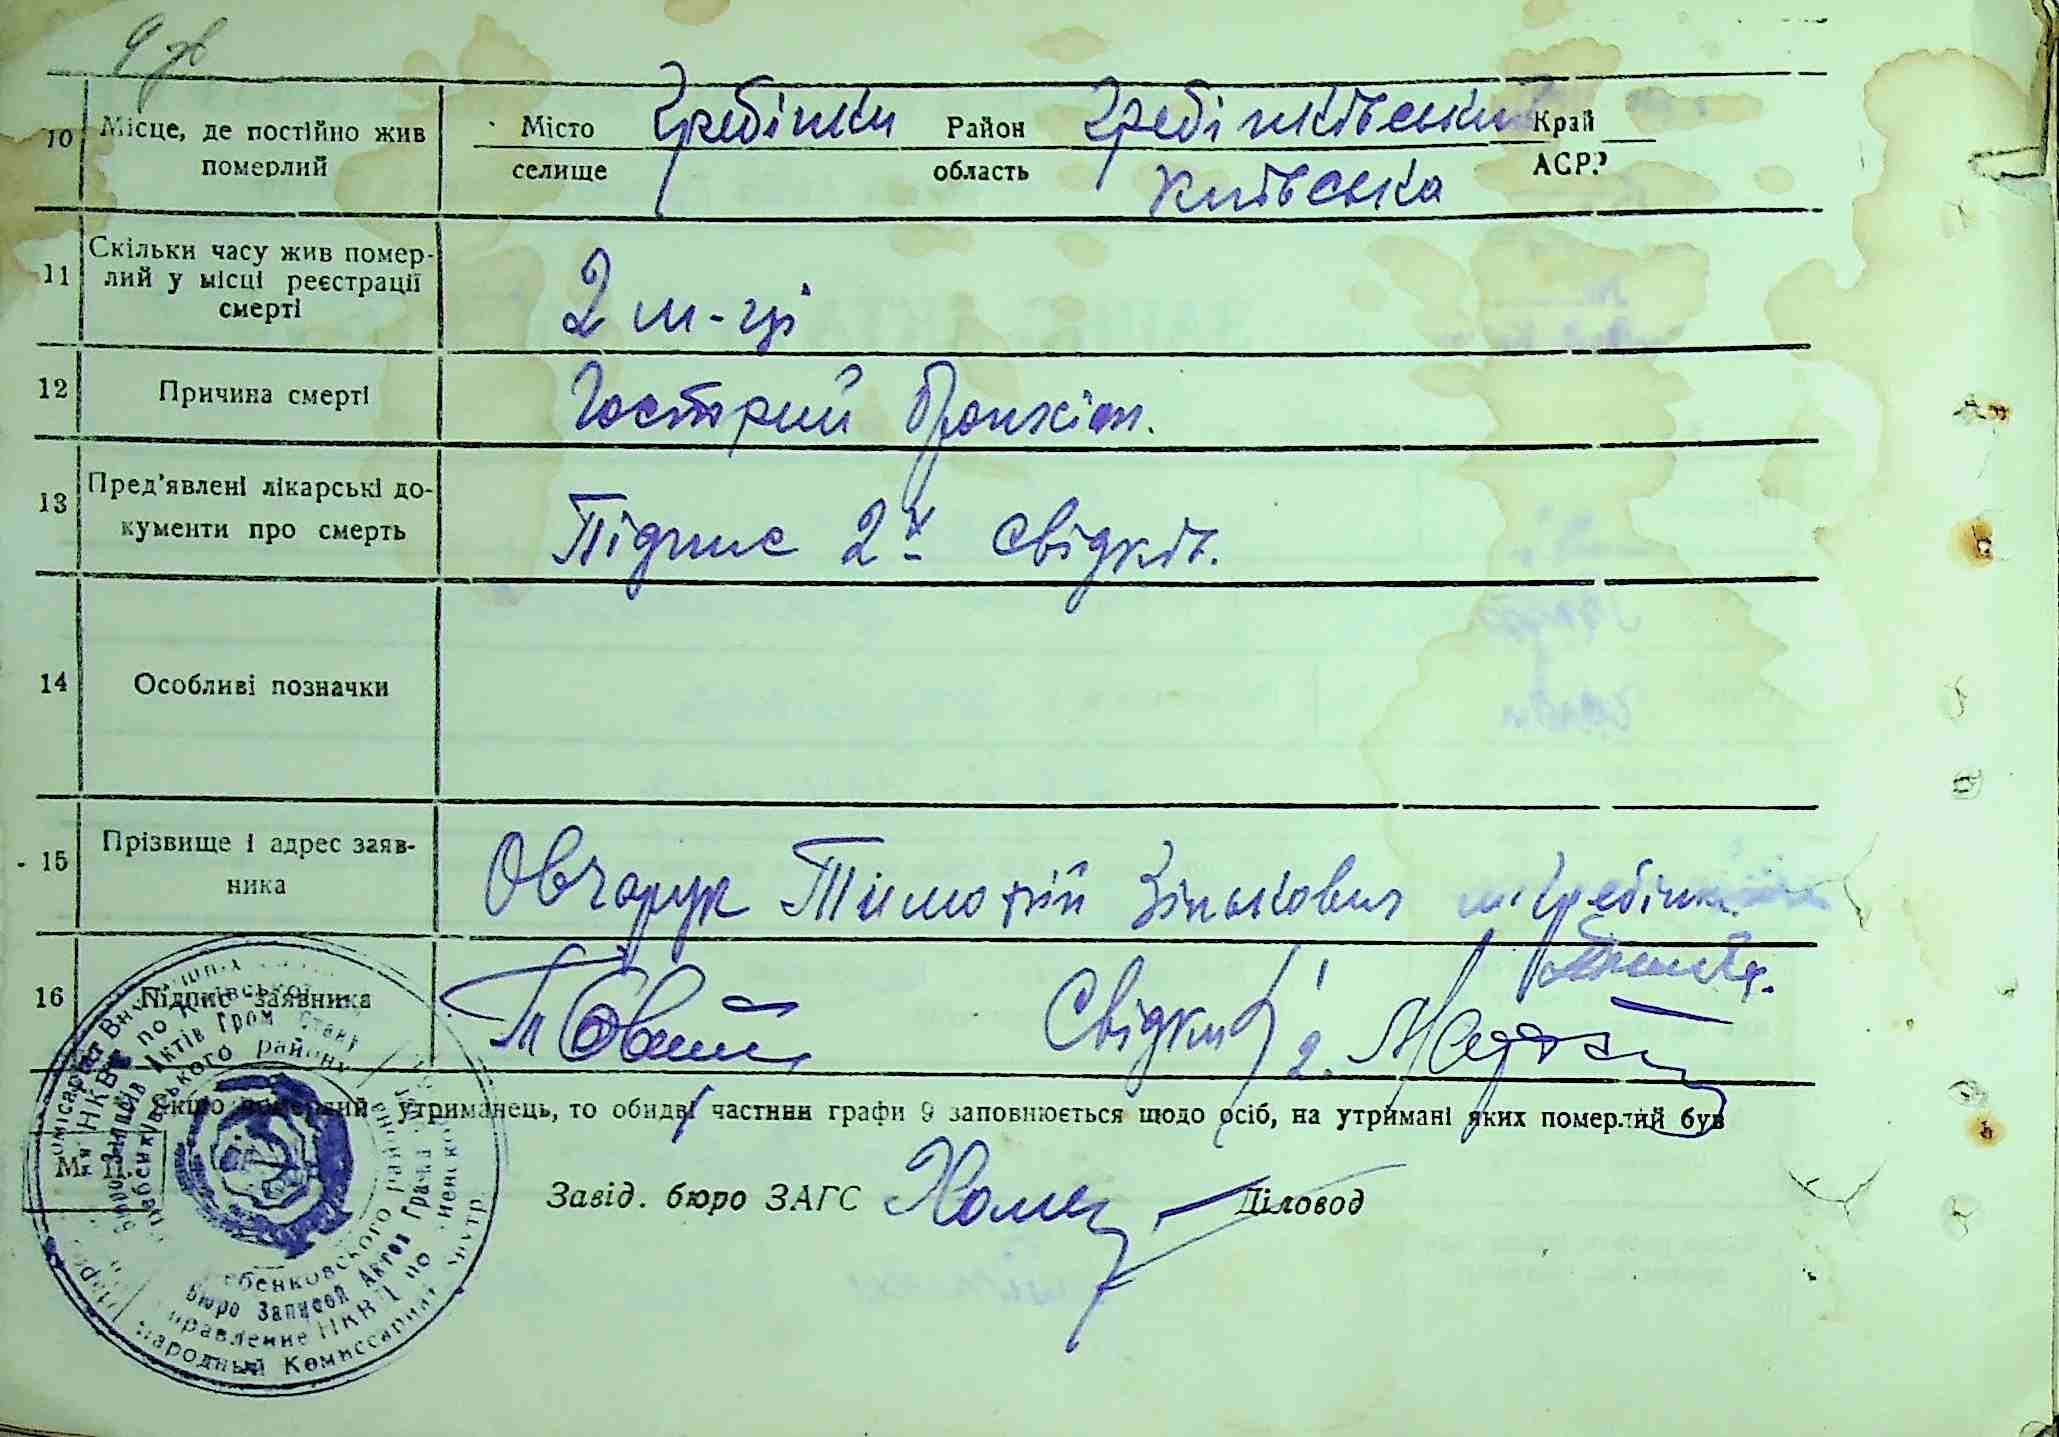 9 зв
10 Місце, де постійно жив померлий Місто селище Гребінки Район область Гребінківський Київська Край АСРР
11 Скільки часу жив помер-
лий у місці реєстрації
смерті
2 м-ці
12 Причина смерті Гострий бронхіт.
13 Пред'явлені лікарські до-
кументи про смерть
Підпис 2х свідків.
14 Особливі позначки
15 Прізвище і адрес заяв-
ника
Овчарук Тимофій Зінькович м. Гребінки
16 Підпис заявника Свідки 1
2.
Якщо померлий утриманець, то обидві частини графи 9 заповнюється щодо осіб, на утримані яких померлий був
М. П.
Завід. бюро ЗАГС Діловод
НКВС по Київській
Актів Гром. Стану
району
Бюро Записей Актов Гражд.
Управление НКВД по
Народный Комиссариат Внутр.